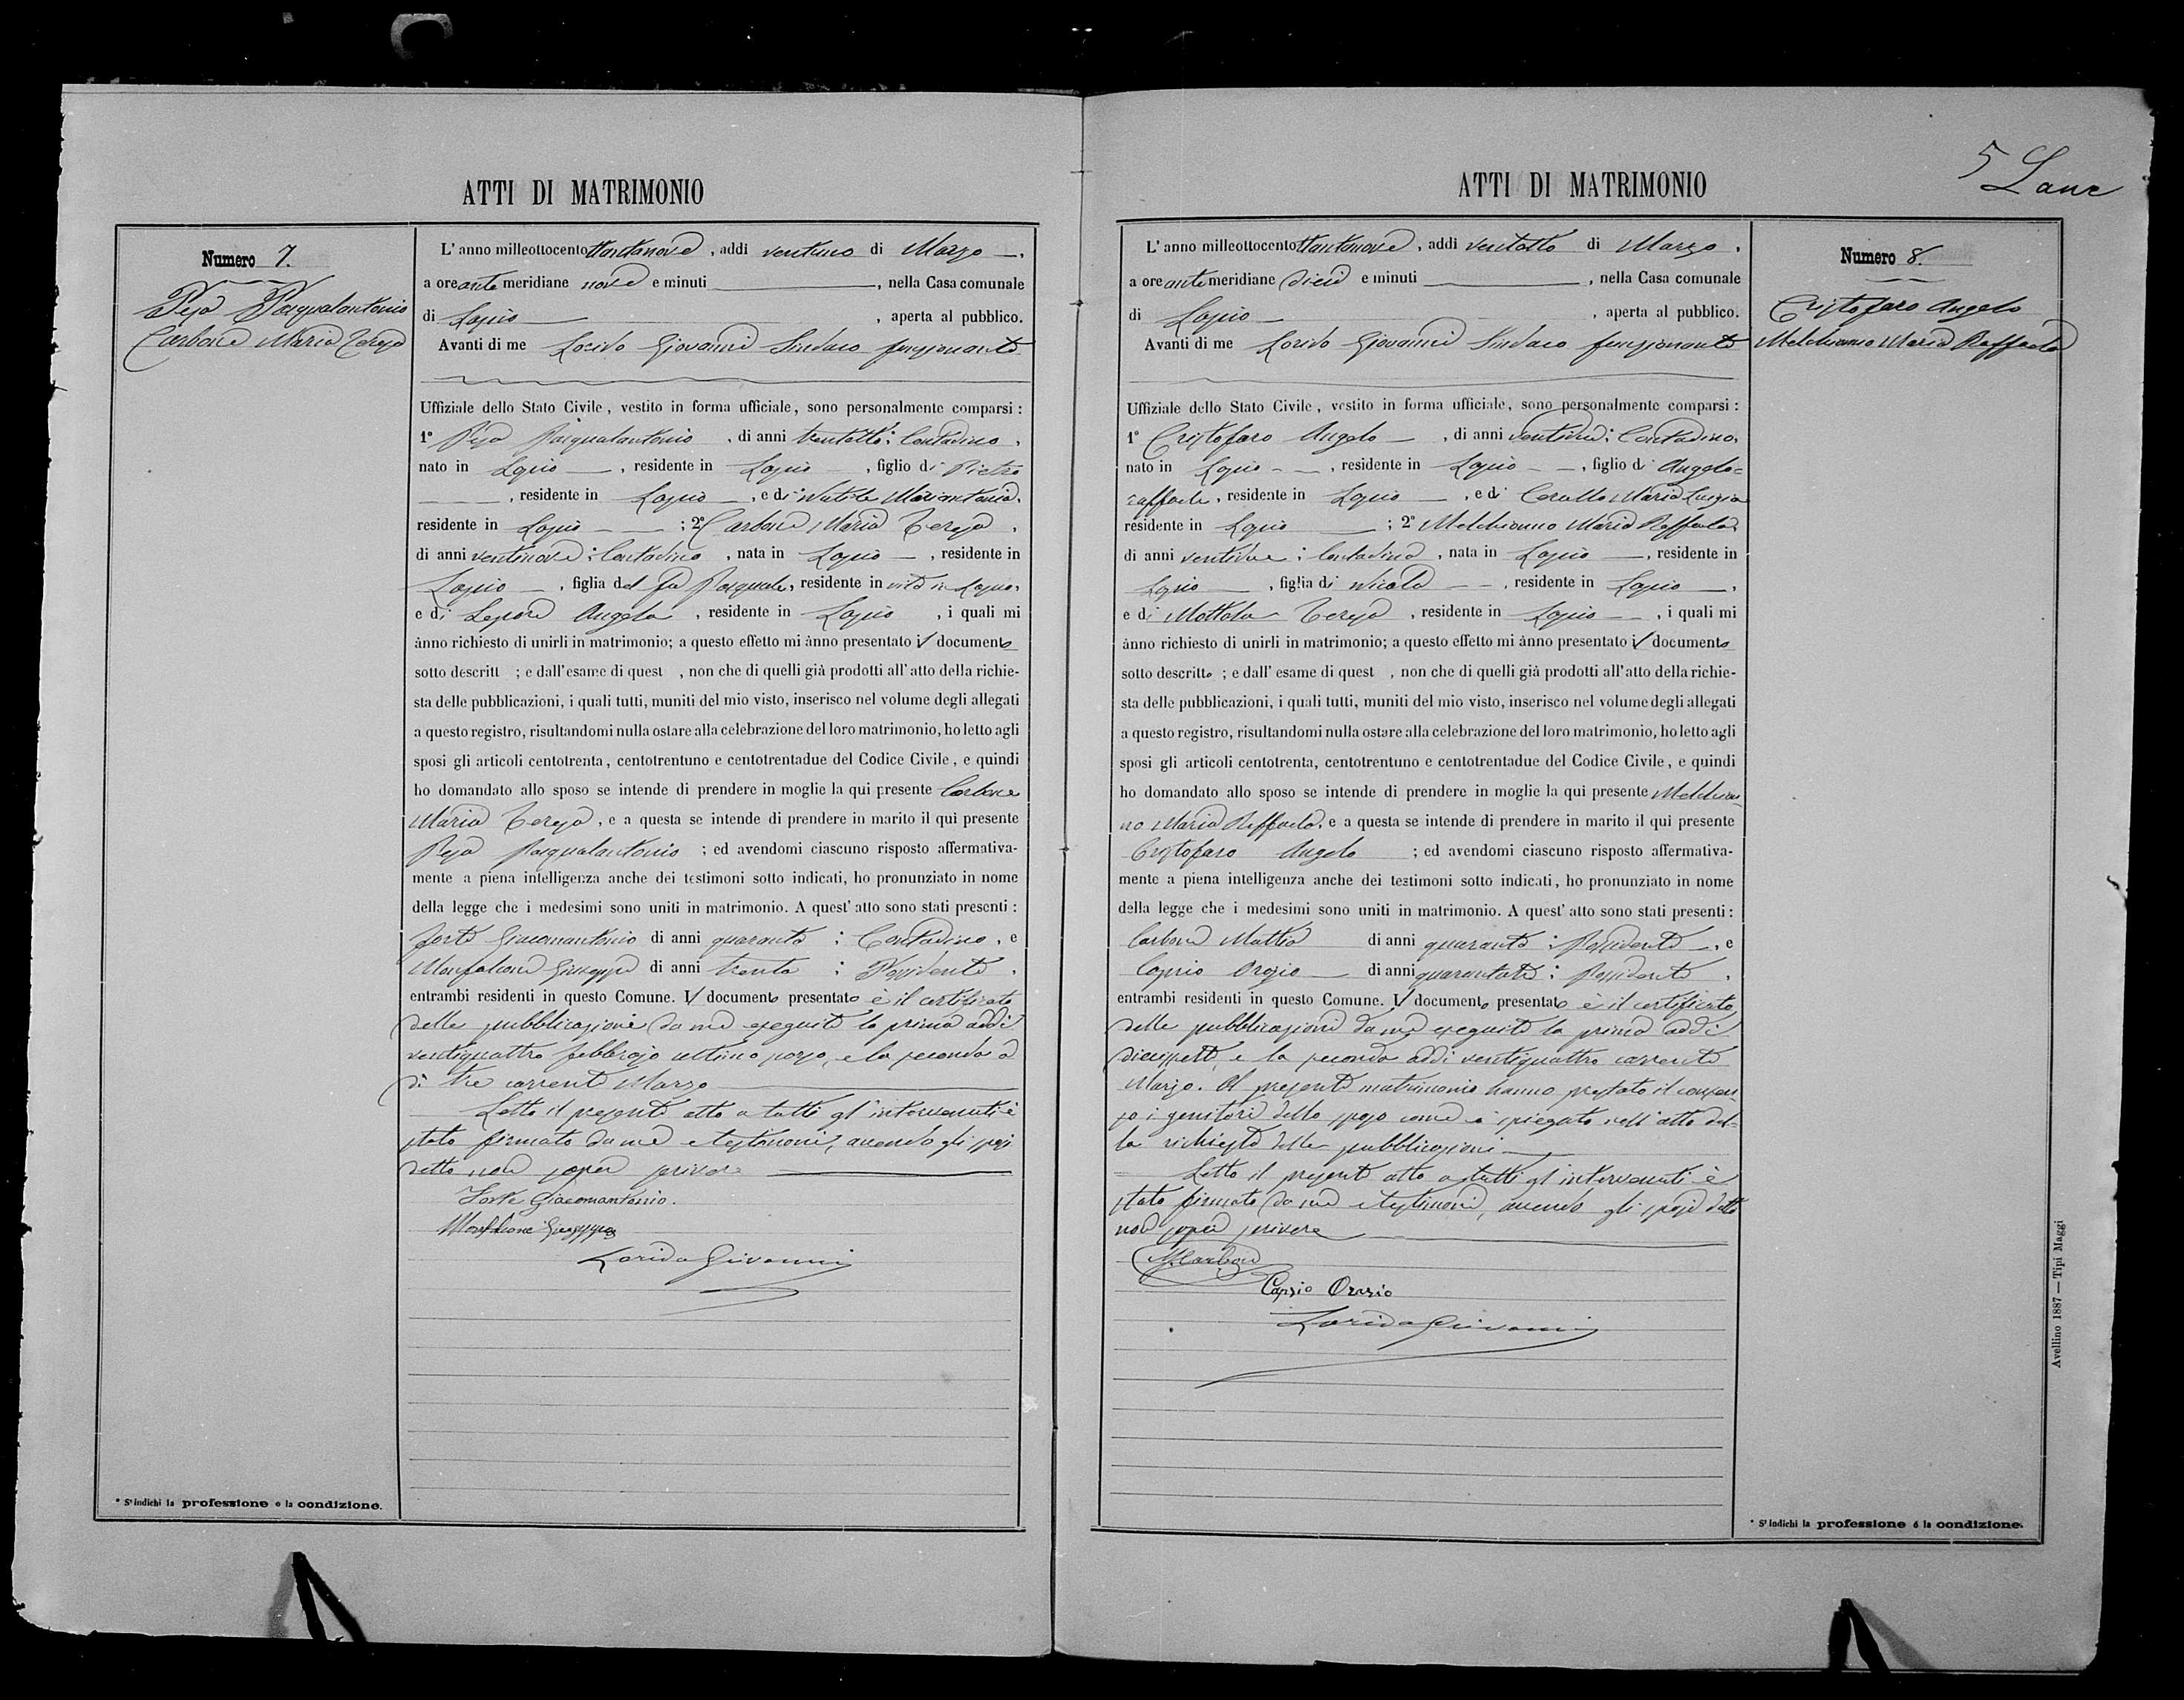 ATTI DI MATRIMONIO
Numero 7.
Pesa Pasqualantonio
Carbone Maria Teresa
L'anno milleottocentottantanove, addi ventuno di Marzo
a ore antemeridiane nove e minuti, nella Casa comunale
di Lapio, aperta al pubblico.
Avanti di me Lorido Giovanni Sindaco funzionante
Uffiziale dello Stato Civile, vestito in forma ufficiale, sono personalmente comparsi:
1° Pesa Pasqualantonio, di anni trentotto: Contadino,
nato in Lapio, residente in Lapio, figlio di Pietro
, residente in Lapio, e di Mariantonia,
residente in Lapio; 2° Carbone Maria Teresa,
di anni ventinove: Contadina, nata in Lapio, residente in
Lapio, figlia del fu Pasquale, residente in vita in Lapio,
e di Lepore Angela, residente in Lapio, i quali mi
ànno richiesto di unirli in matrimonio; a questo effetto mi ànno presentato il documento
sotto descritt ; e dall'esame di quest , non che di quelli già prodotti all'atto della richie-
sta delle pubblicazioni, i quali tutti, muniti del mio visto, inserisco nel volume degli allegati
a questo registro, risultandomi nulla ostare alla celebrazione del loro matrimonio, ho letto agli
sposi gli articoli centotrenta, centotrentuno e centotrentadue del Codice Civile, e quindi
ho domandato allo sposo se intende di prendere in moglie la qui presente Carbone
Maria Teresa, e a questa se intende di prendere in marito il qui presente
Pesa Pasqualantonio; ed avendomi ciascuno risposto affermativa-
mente a piena intelligenza anche dei testimoni sotto indicati, ho pronunziato in nome
della legge che i medesimi sono uniti in matrimonio. A quest'atto sono stati presenti:
Forte Giacomantonio di anni quaranta: Contadino, e
Monfalcone Giuseppe di anni trenta: Possidente,
entrambi residenti in questo Comune. Il documento presentato è il certificato
delle pubblicazioni da me eseguite la prima addì
ventiquattro febbrajo ultimo scorso, e la seconda a
dì tre corrente Marzo
Letto il presente atto a tutti gl'intervenuti è
stato firmato da me e testimoni, avendo gli sposi
detto non saper scrivere
Forte Giacomantonio.
Monfalcone Giuseppe
Lorido Giovanni
* Si indichi la professione o la condizione.
5 Lanc
ATTI DI MATRIMONIO
Numero 8.
Cristofaro Angelo
Melchionno Maria Raffaela
L'anno milleottocentottantanove, addi ventotto di Marzo,
a ore antemeridiane dieci e minuti, nella Casa comunale
di Lapio, aperta al pubblico.
Avanti di me Lorido Giovanni Sindaco funzionante
Uffiziale dello Stato Civile, vestito in forma ufficiale, sono personalmente comparsi:
1° Cristofaro Angelo, di anni: Contadino,
nato in Lapio, residente in Lapio, figlio di Angelo=
raffaele, residente in Lapio, e di Cerullo Maria Luigia
residente in Lapio; 2° Melchionno Maria Raffaela,
di anni ventidue: Contadina, nata in Lapio, residente in
Lapio, figlia di Nicola, residente in Lapio,
e di Mottola Teresa, residente in Lapio, i quali mi
ànno richiesto di unirli in matrimonio; a questo effetto mi ànno presentato il documento
sotto descritto; e dall'esame di quest , non che di quelli già prodotti all'atto della richie-
sta delle pubblicazioni, i quali tutti, muniti del mio visto, inserisco nel volume degli allegati
a questo registro, risultandomi nulla ostare alla celebrazione del loro matrimonio, ho letto agli
sposi gli articoli centotrenta, centotrentuno e centotrentadue del Codice Civile, e quindi
ho domandato allo sposo se intende di prendere in moglie la qui presente Melchion-
no Maria Raffaela, e a questa se intende di prendere in marito il qui presente
Cristofaro Angelo; ed avendomi ciascuno risposto affermativa-
mente a piena intelligenza anche dei testimoni sotto indicati, ho pronunziato in nome
della legge che i medesimi sono uniti in matrimonio. A quest'atto sono stati presenti:
Carbone Mattia di anni quaranta: Possidente, e
Caprio Orazio di anni quarantatre: Possidente,
entrambi residenti in questo Comune. Il documento presentato è il certificato
delle pubblicazioni da me eseguite la prima addì
diciassette, e la seconda addì ventiquattro corrente
Marzo. Al presente matrimonio hanno prestato il consen-
so i genitori dello sposo come è spiegato nell'atto del-
la richiesta delle pubblicazioni
Letto il presente atto a tutti gl'intervenuti è
stato firmato da me e testimoni, avendo gli sposi detto
non saper scrivere
M. Carbone
Caprio Orazio
Lorido Giovanni
* Si indichi la professione o la condizione.
Avellino 1887 — Tipi Maggi